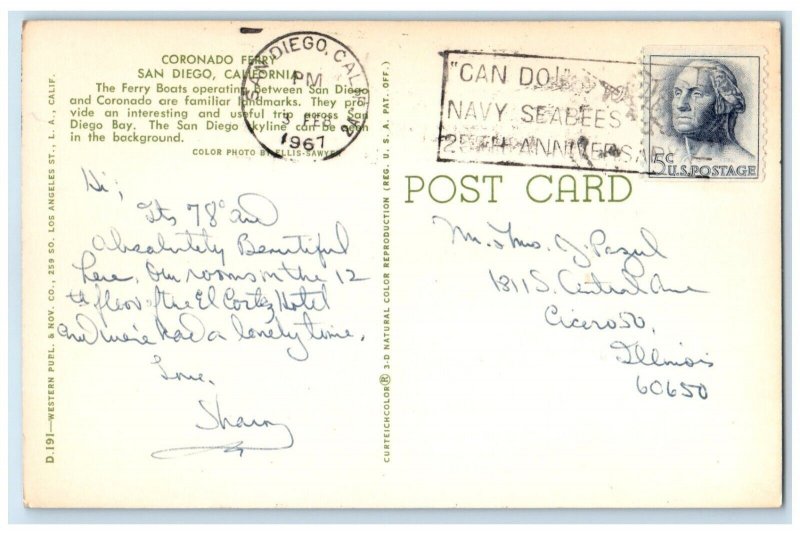 CORONADO FERRY
SAN DIEGO, CALIFORNIA
The Ferry Boats operating between San Diego
and Coronado are familiar landmarks. They pro-
vide an interesting and useful trip across San
Diego Bay. The San Diego skyline can be seen
in the background.
COLOR PHOTO BY ELLIS-SAWYER
SAN DIEGO, CALIF.
PM
3 FEB
1967
"CAN DO!"
NAVY SEABEES
25TH ANNIVERSARY
5c
U.S. POSTAGE
POST CARD
Hi;
Its 78° and
Absolutely Beautiful
here. Our rooms on the 12
th floor of the El Cortez Hotel
and we're had a lovely time.
Love,
Sharon
Mr. & Mrs. J. Pazul
1811 S. Central Ave
Cicero 50,
Illinois
60650
D.191—WESTERN PUBL. & NOV. CO., 259 SO. LOS ANGELES ST., L. A., CALIF.
CURTEICHCOLOR® 3-D NATURAL COLOR REPRODUCTION (REG. U. S. A. PAT. OFF.)